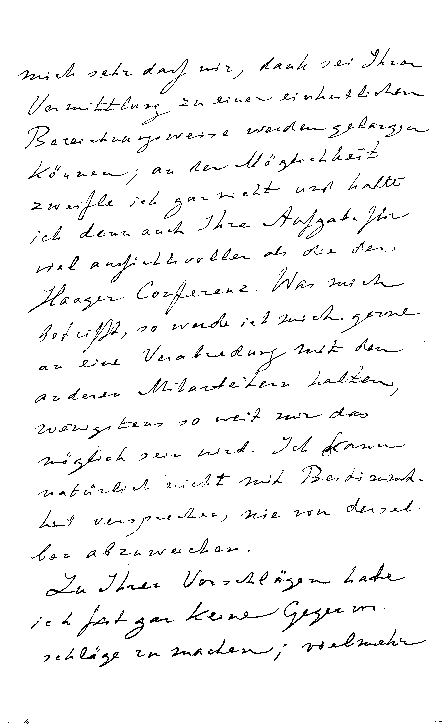 mich sehr daß wir, dank sei Ihrer
Vermittlung zu einer einheitlichen
Bezeichnungsweise werden gelangen
können; an der Möglichkeit
zweifle ich gar nicht und halte
ich denn auch Ihre Aufgabe für
viel aussichtsvoller als die der
Haager Conferenz. Was mich
betrifft, so werde ich mich gerne
an eine Verabredung mit den
anderen Mitarbeitern halten,
wenigstens so weit mir das
möglich sein wird. Ich kann
natürlich nicht mit Bestimmt-
heit versprechen, nie von dersel-
ben abzuweichen.
Zu Ihren Vorschlägen habe
ich fast gar keine Gegenvor-
schläge zu machen; vielmehr